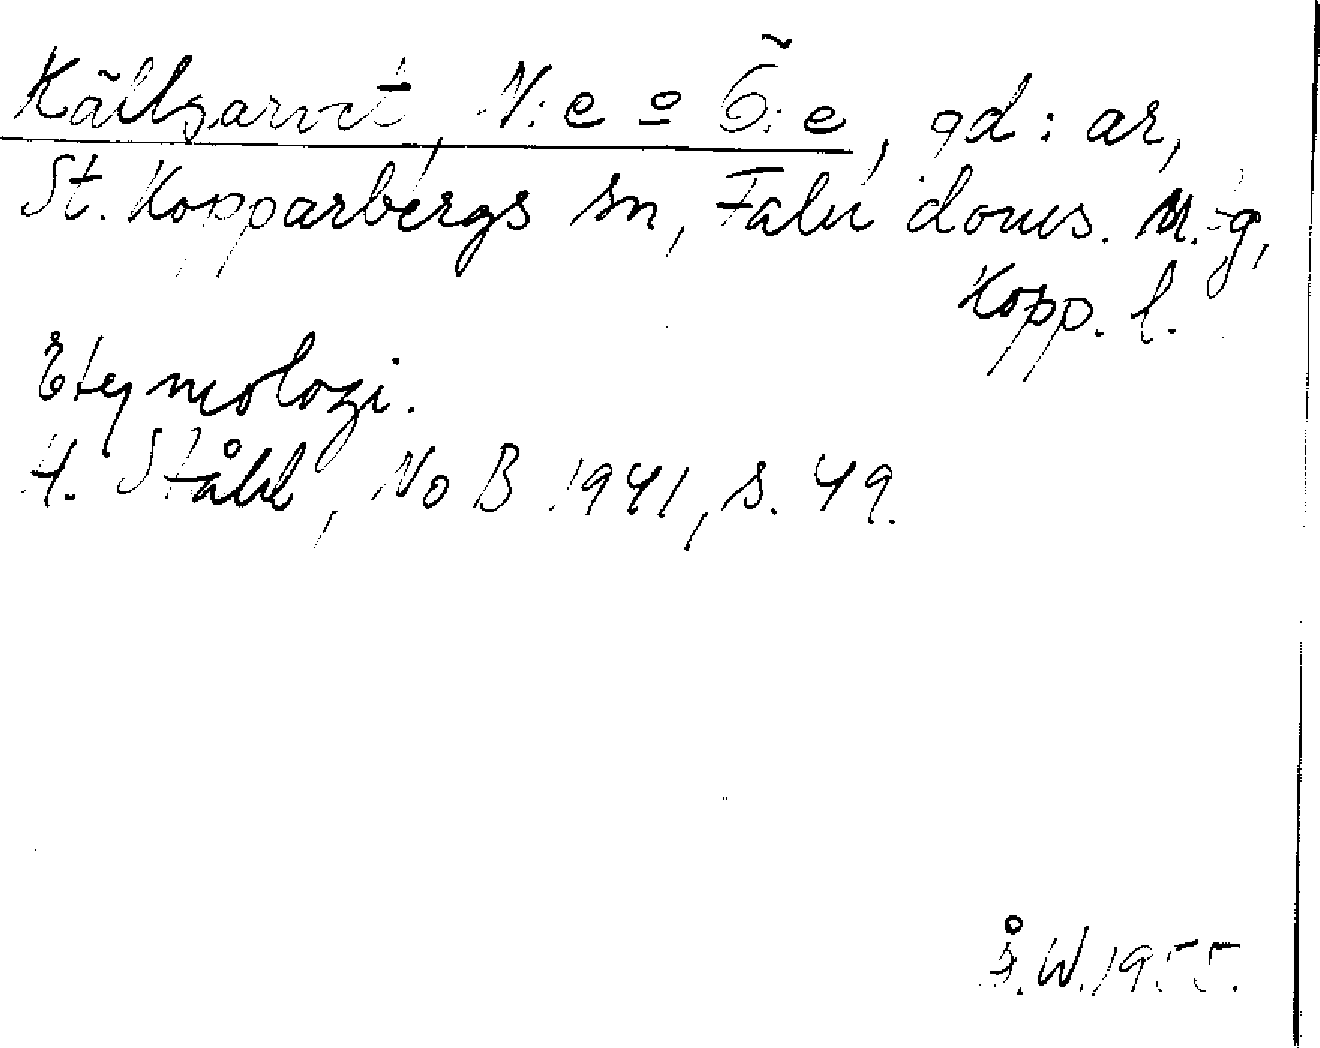 Källsarvet, N:e o Ö:e, gd:ar,
St. Kopparbergs sn, Falu doms. n:g,
Kopp. l.
Etymologi.
H. Ståhl, NoB 1941, s. 49.
Å.W.1955.